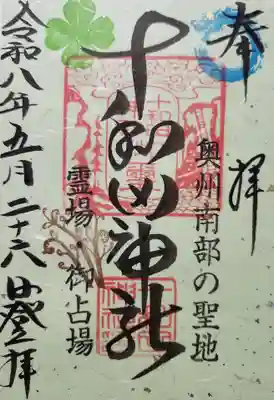 奉拝
奥州南部の聖地
十和田神社
霊場・御占場
令和八年五月二十六日登拝